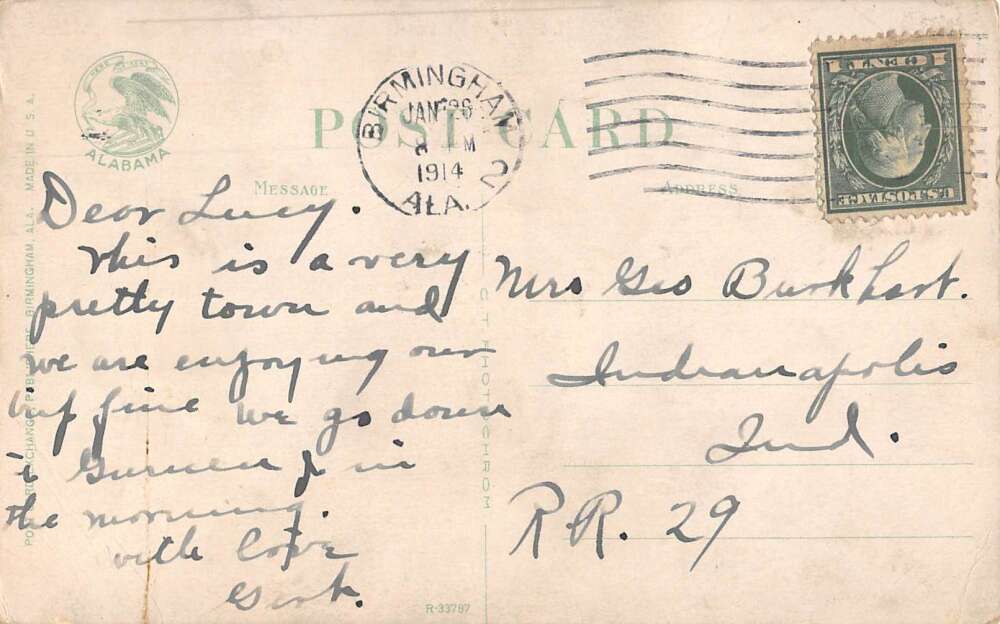 HERE WE REST
ALABAMA
POST CARD
BIRMINGHAM
JAN 26
M
1914
ALA.
2
1 CENT 1
U.S. POSTAGE
MESSAGE
ADDRESS
Dear Lucy.
This is a very
pretty town and
we are enjoying our
fine we go down
in
the morning.
with love
Mrs Geo Burkhart.
Indianapolis
Ind.
R.R. 29
POST CARD EXCHANGE, PUBLISHERS, BIRMINGHAM, ALA. MADE IN U.S.A.
C. T. PHOTOCHROM
R-33787